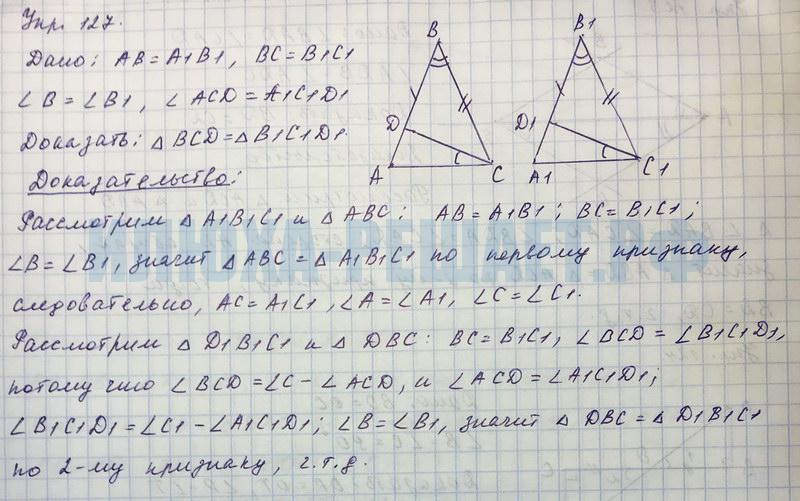 Упр. 127.
Дано: AB = A1B1, BC = B1C1
∠B = ∠B1, ∠ACD = A1C1D1
Доказать: △BCD = △B1C1D1.
Доказательство:
B
D
A
C
B1
D1
A1
C1
Рассмотрим △A1B1C1 и △ABC: AB = A1B1; BC = B1C1;
∠B = ∠B1, значит △ABC = △A1B1C1 по первому признаку,
следовательно, AC = A1C1, ∠A = ∠A1, ∠C = ∠C1.
Рассмотрим △D1B1C1 и △DBC: BC = B1C1, ∠BCD = ∠B1C1D1,
потому что ∠BCD = ∠C - ∠ACD, и ∠ACD = ∠A1C1D1;
∠B1C1D1 = ∠C1 - ∠A1C1D1; ∠B = ∠B1, значит △DBC = △D1B1C1
по 2-му признаку, ч.т.д.